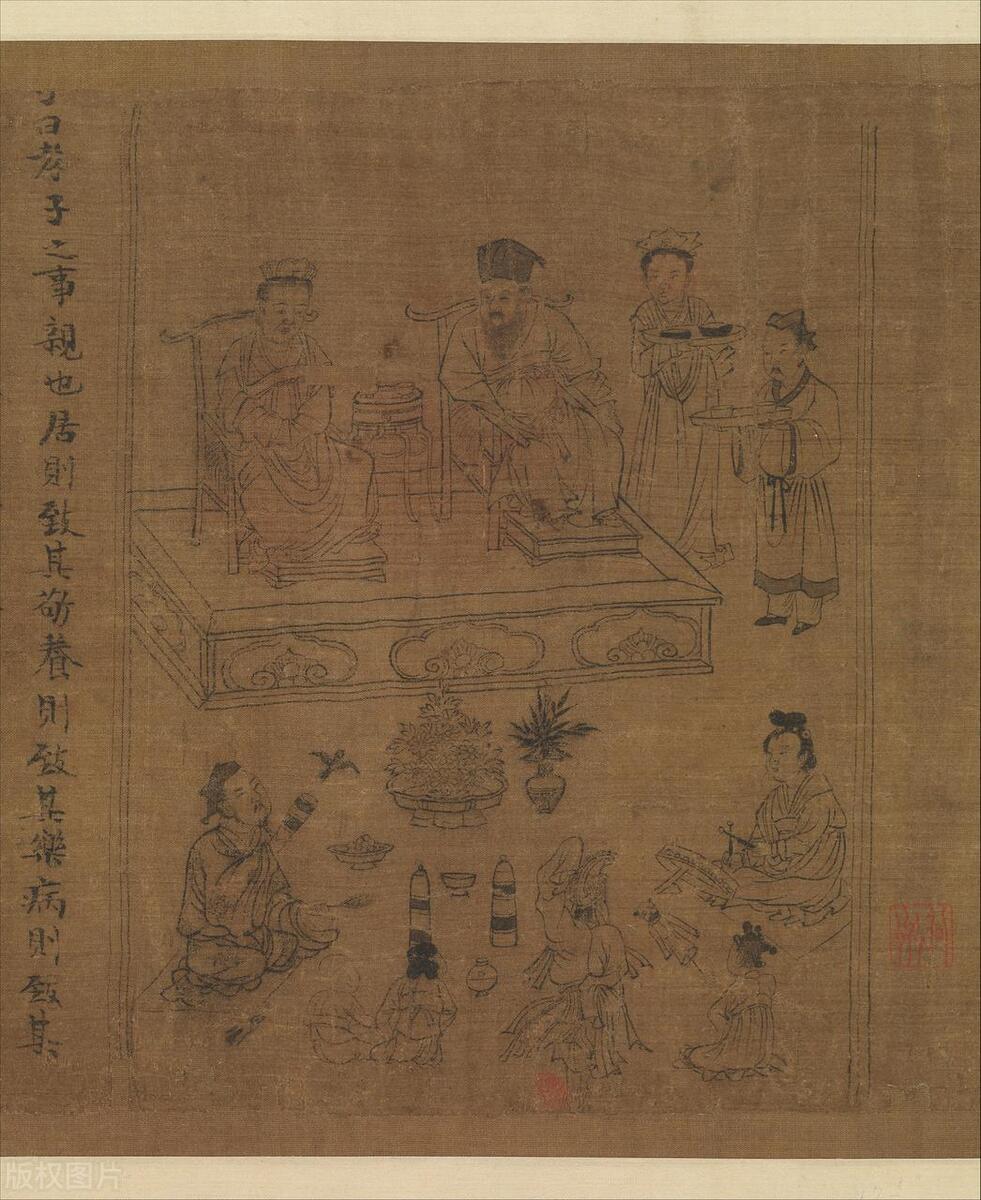 曰孝子之事親也居則致其敬養則致其樂病則致其
版权图片